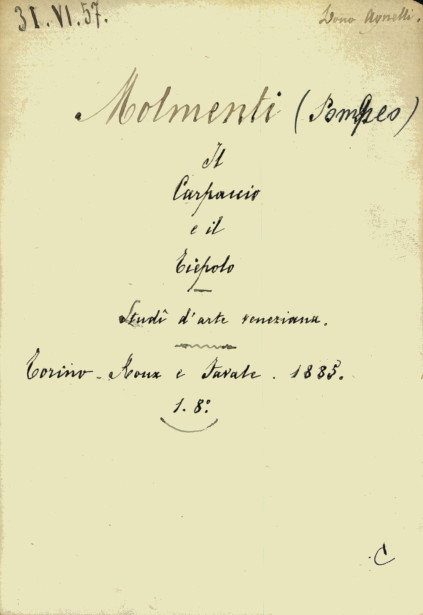 31.VI.57.
Dono Agnelli.
Molmenti (Pompeo)
Il
Carpaccio
e il
Tiepolo
Studî d'arte veneziana.
Torino - Roux e Favale. 1885.
1. 8°
C